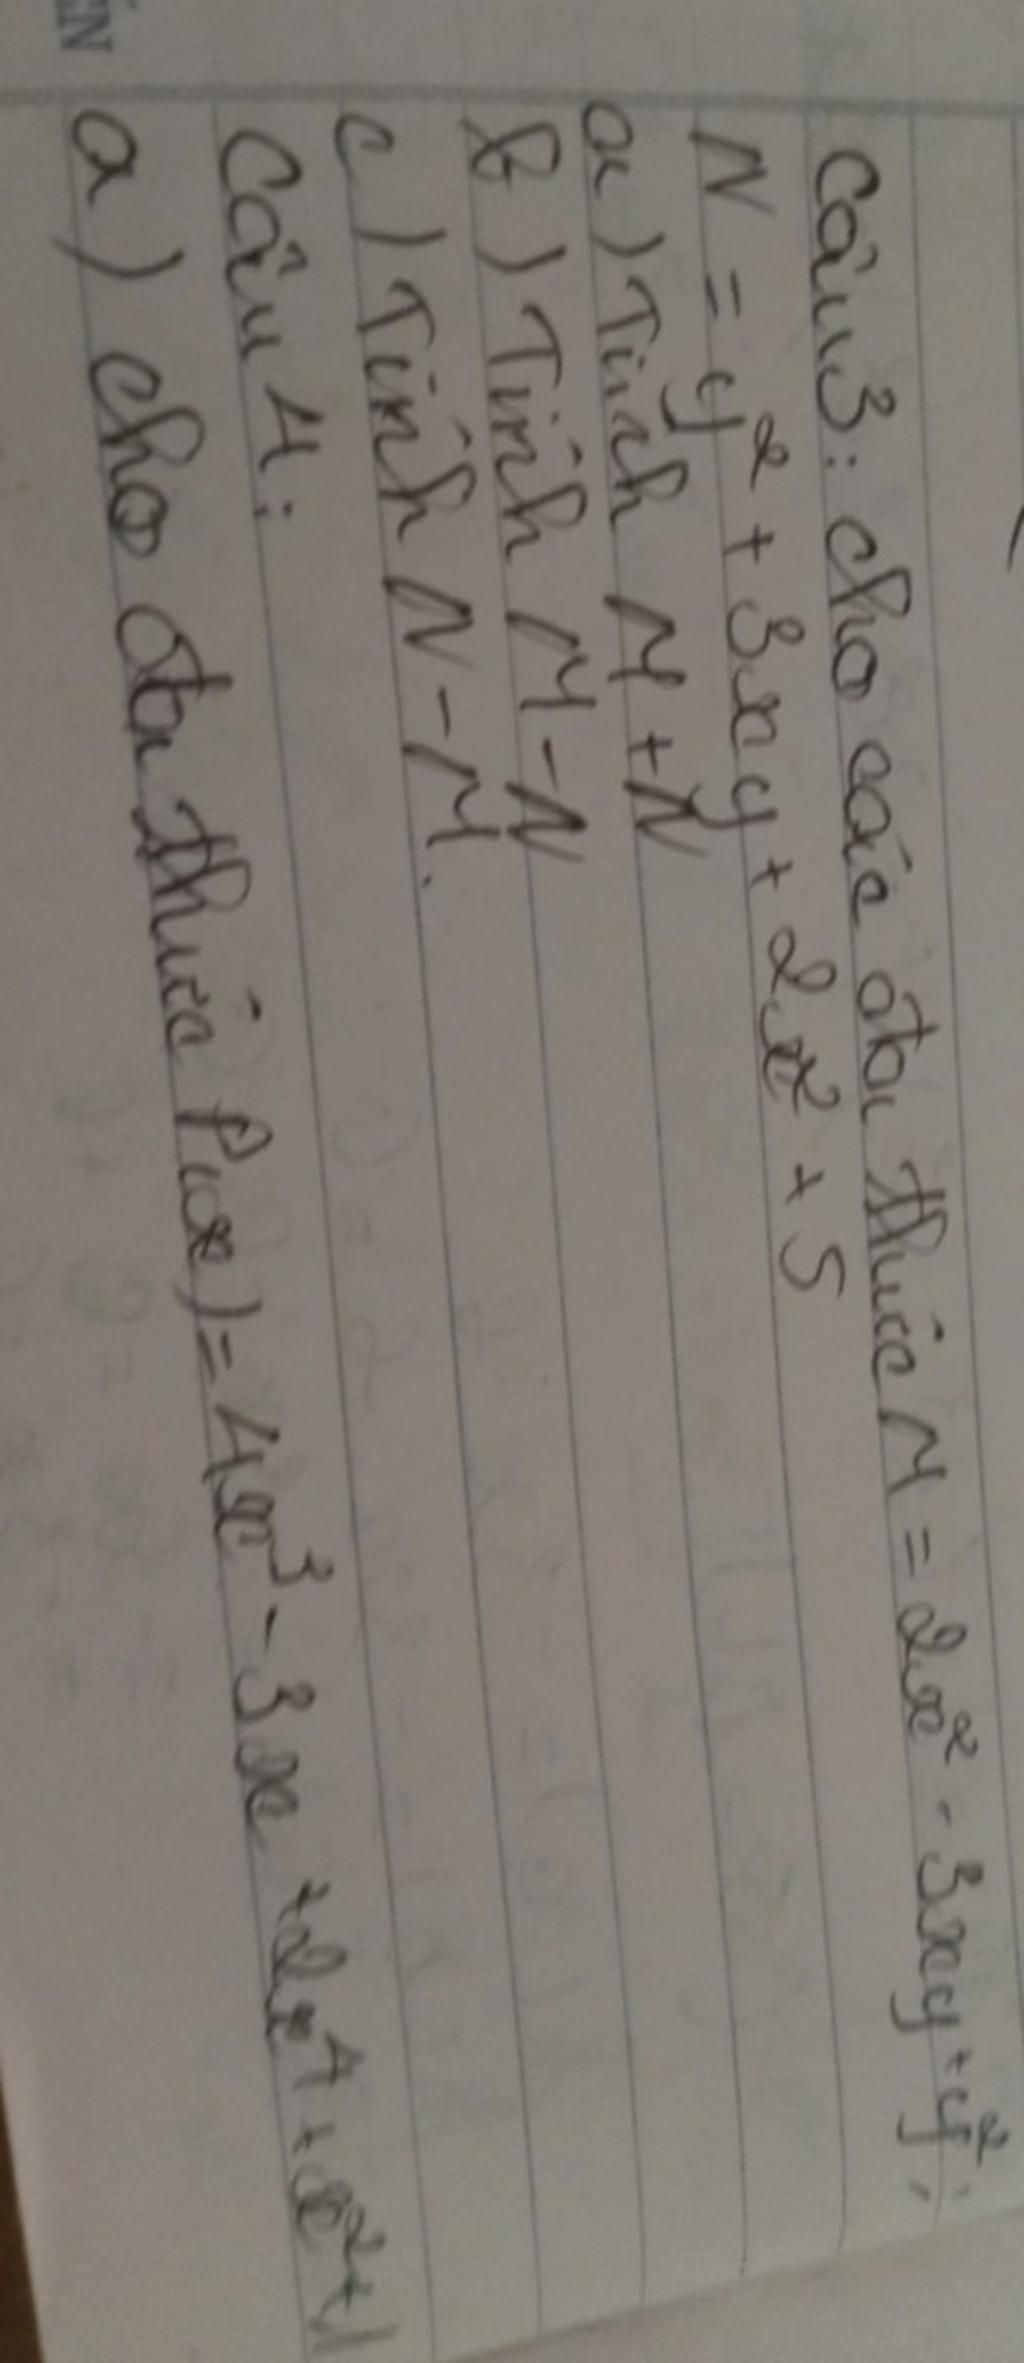 Câu 3: cho các đa thức M = 2x² - 3xy + y²;
N = y² + 3xy + 2x² + 5
a) Tính M + N
b) Tính M - N
c) Tính N - M.
Câu 4:
a) cho đa thức P(x) = 4x³ - 3x + 2x⁴ + x² + 1